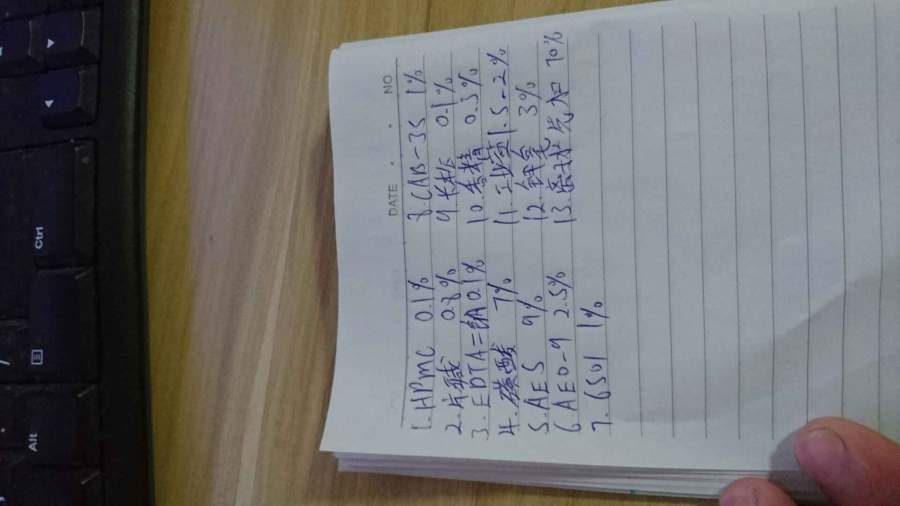 DATE . . NO
1. HPMC 0.1%
2. 片碱 0.8%
3. EDTA=钠 0.1%
4. 磺酸 7%
5. AES 9%
6. AEO-9 2.5%
7. 6501 1%
8. CAB-35 1%
9. 卡松 0.1%
10. 香精 0.3%
11. 工业盐 1.5-2%
12. 3%
13. 70%
Ctrl
Alt